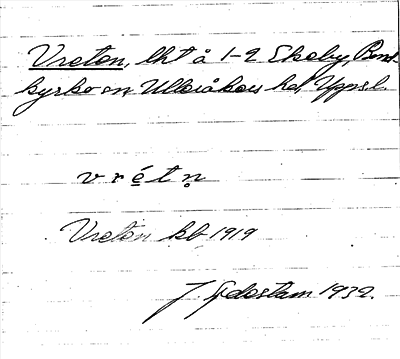 Vreten, lht å 1-2 Ekeby, Bond-
kyrko sn, Ulleråkers hd, Uppsl.
v r é t n̥
Vreten kb 1919
J. Sjdestam 1932.